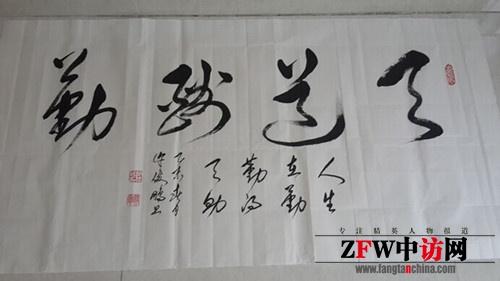 天道酬勤
人生
在勤
勤得
天助
乙未春月
专注精英人物报道
ZFW中访网
www.fangtanchina.com